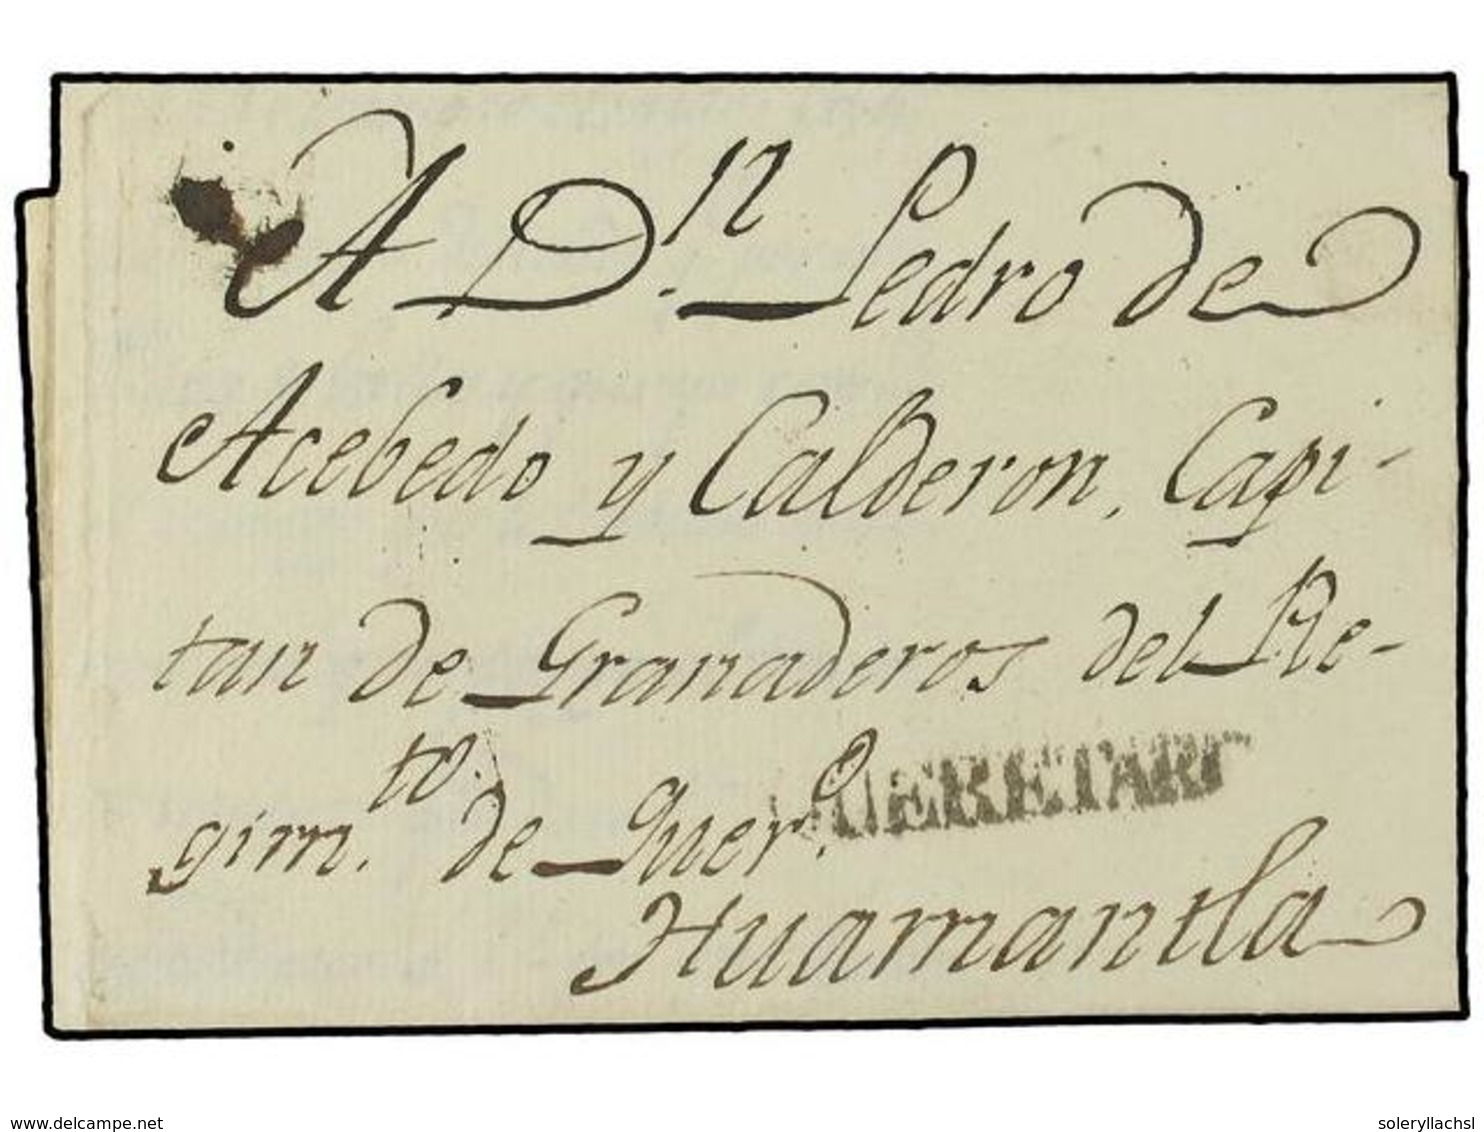 A D.n Pedro de
Acebedo y Calderon, Capi-
tan de Granaderos del Re-
gim.to de Quer.o
QUERETARO
Huamantla
www.delcampe.net
soleryllachsl